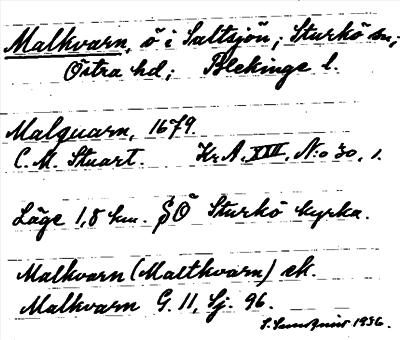 Malkvarn, ö i Saltsjön; Sturkö sn;
Östra hd; Blekinge l.
Malquarn, 1679.
C. M. Stuart. Kr A, XIII, N:o 30, 1.
Läge 1,8 km. SÖ Sturkö kyrka.
Malkvarn (Maltkvarn) ek.
Malkvarn G. 11, Sj. 96.
S. 1936.